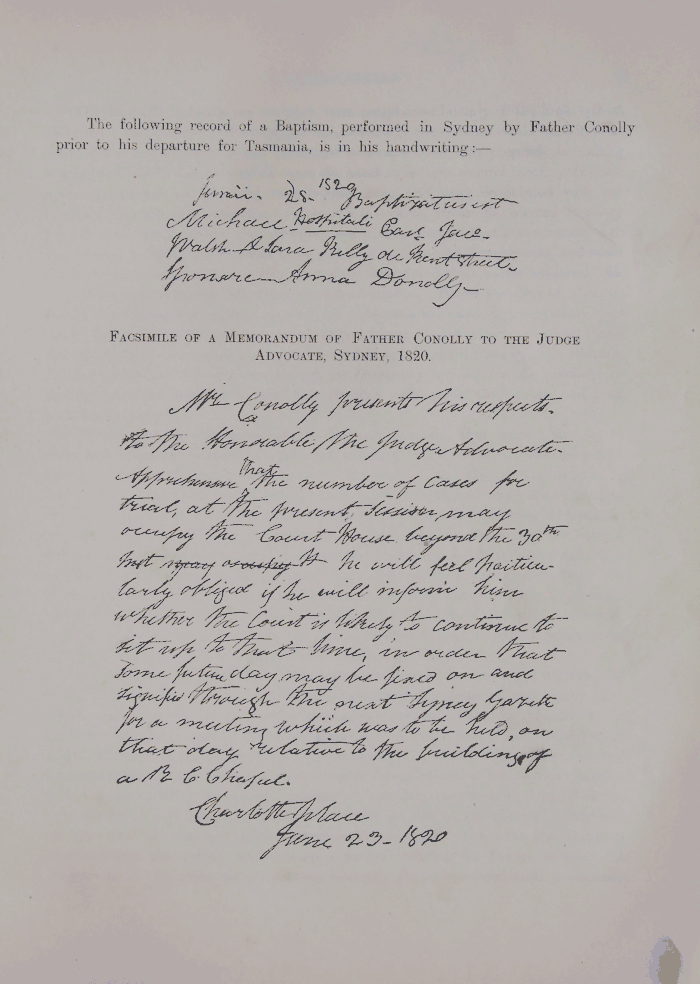 The following record of a Baptism, performed in Sydney by Father Conolly
prior to his departure for Tasmania, is in his handwriting:—
28- 1820 Baptizatus est
Michael Hospitali
Walsh & Sara Kelly de Kent Street-
Anna Donolly-
FACSIMILE OF A MEMORANDUM OF FATHER CONOLLY TO THE JUDGE
ADVOCATE, SYDNEY, 1820.
Mr Conolly presents his respects-
to the Honorable, the Judge Advocate-
Apprehensive that the number of Cases for
trial, at the present, Session, may
occupy the Court House beyond the 30th
Inst may occupy it he will feel particu-
larly obliged if he will inform him
whether the Court is likely to continue to
sit up to that time, in order that
some future day may be fixed on and
signified through the next Sydney Gazette
for a meeting which was to be held, on
that day relative to the building of
a R C Chapel.
Charlotte place
June 23-1820